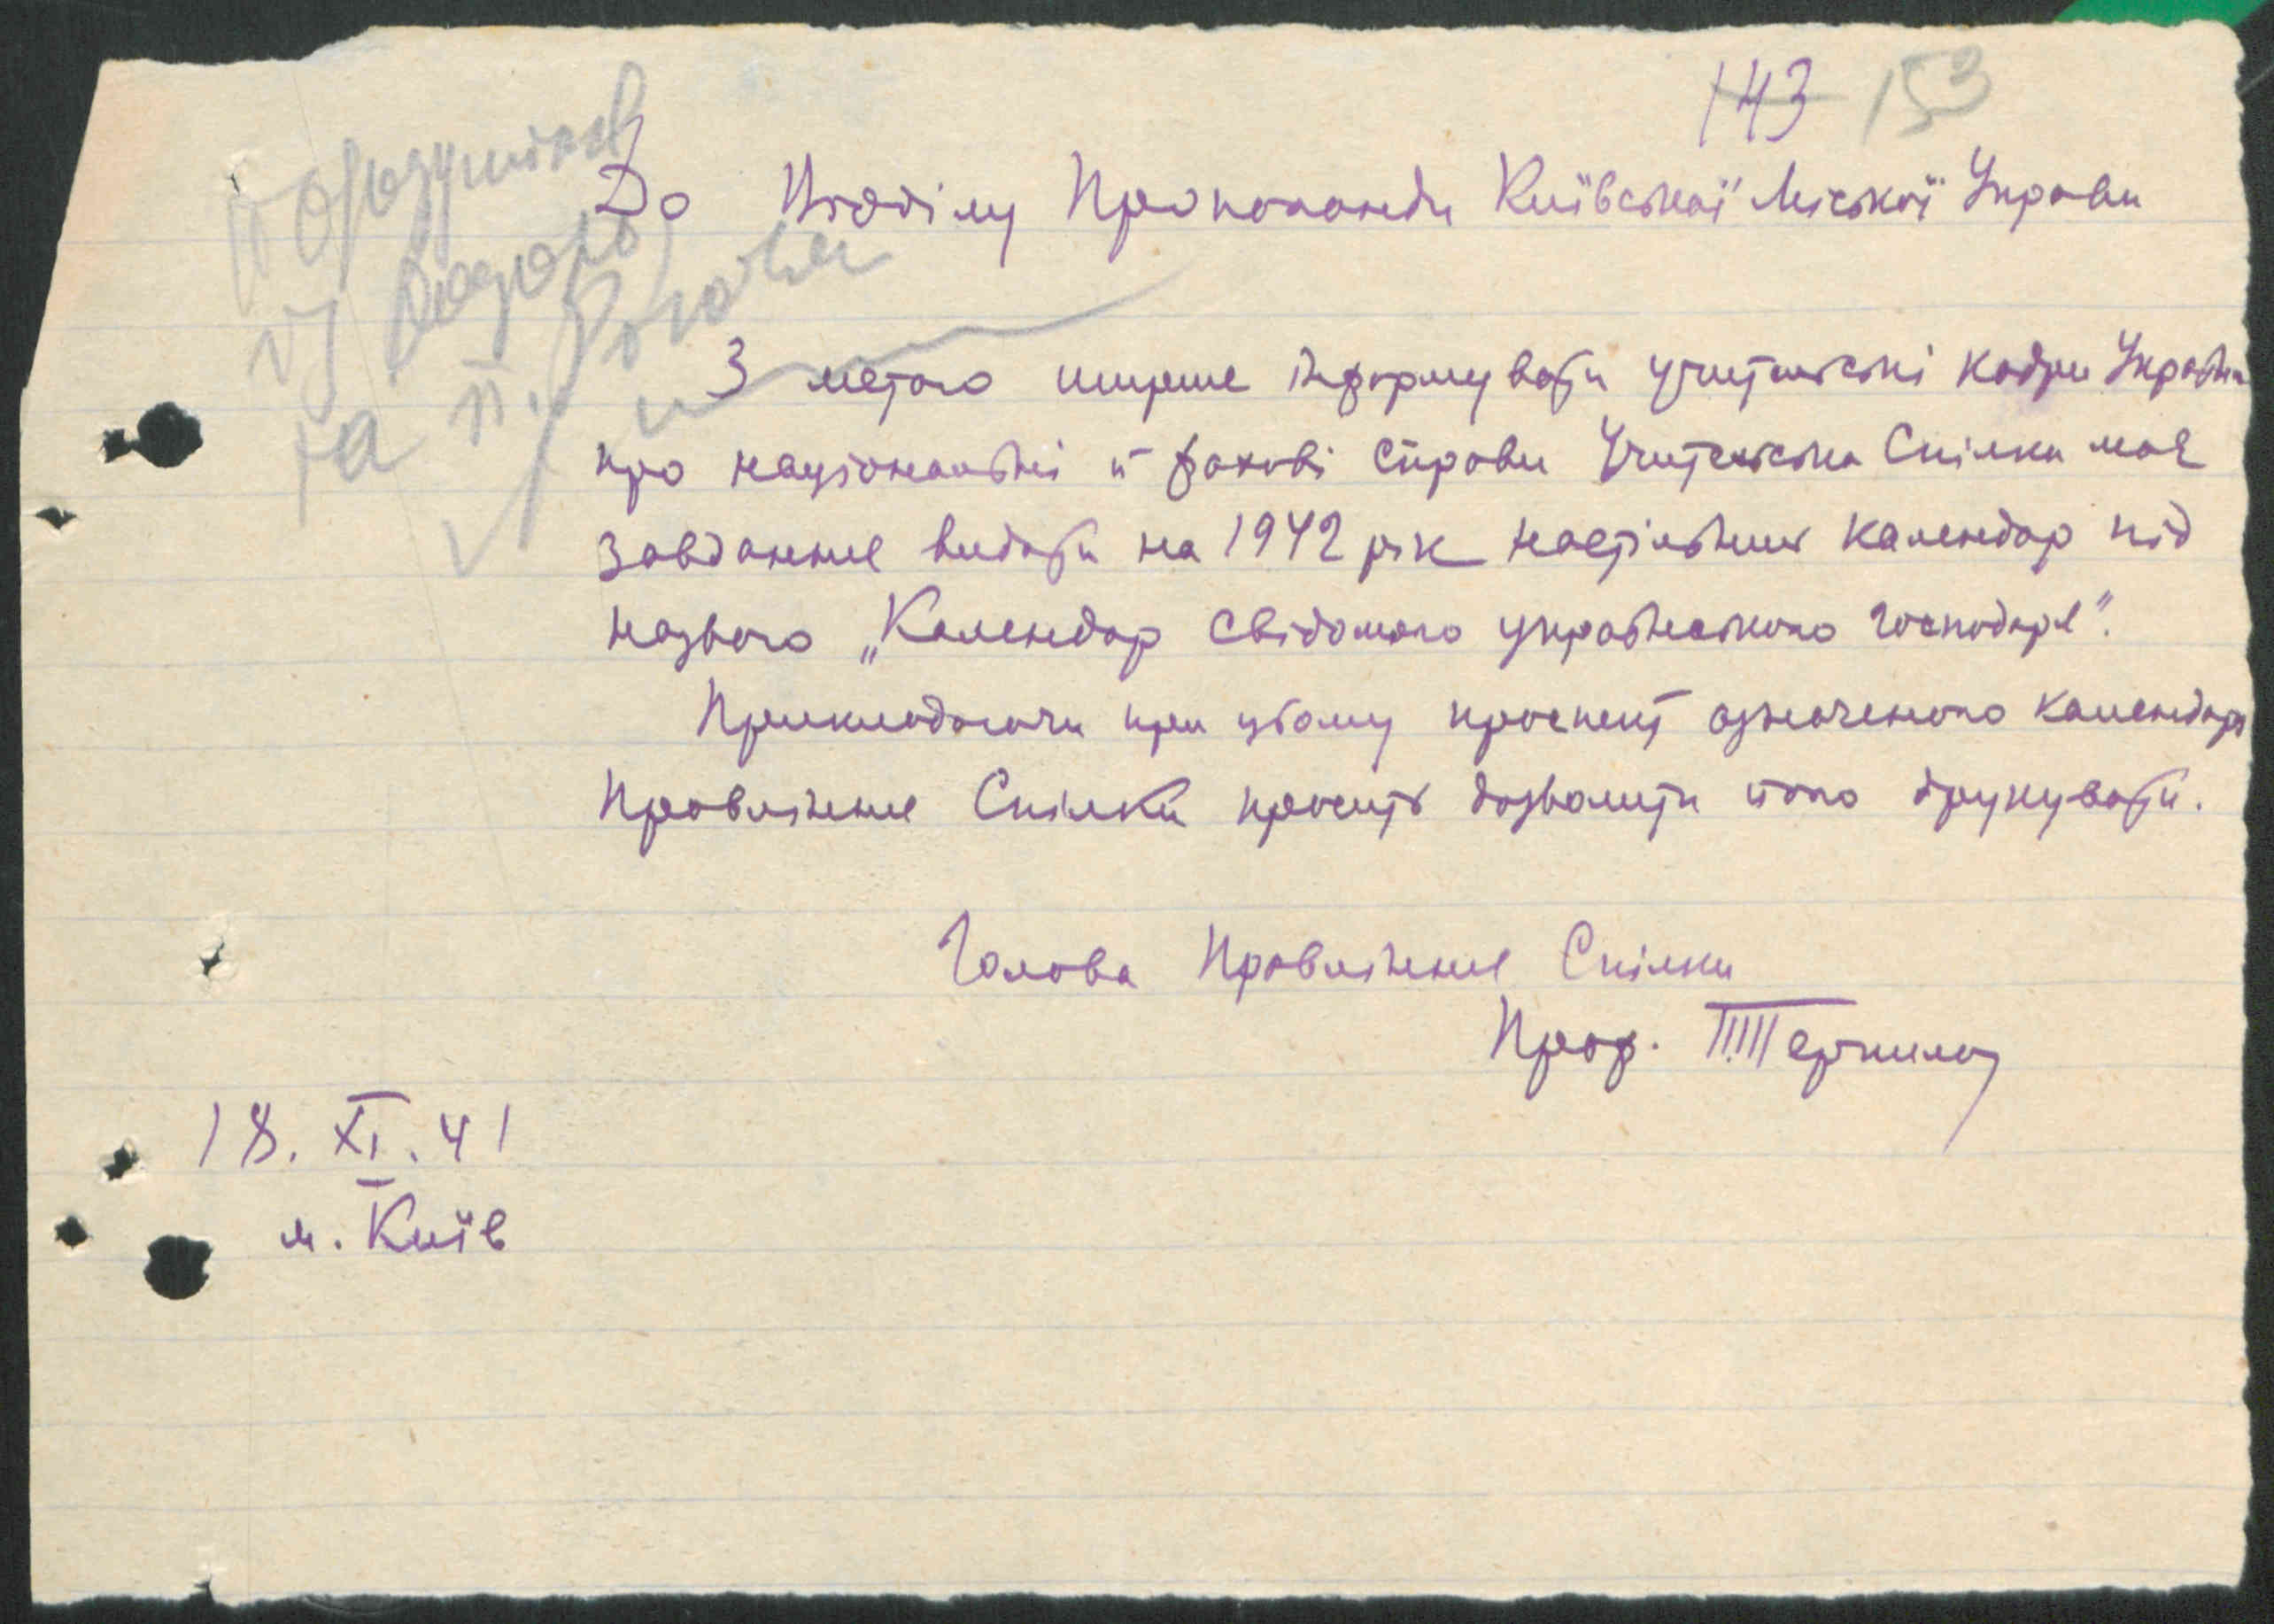 143 153
До Відділу Пропаганди Київської Міської Управи
З метою ширше інформувати учительські кадри України
про національні й фахові справи Учительська Спілка має
завдання видати на 1942 рік настільний календар під
назвою „Календар свідомого українського господаря".
Прикладаючи при цьому проспект означеного календаря
Правління Спілки просить дозволити його друкувати.
Голова Правління Спілки
Проф.
18. XI. 41
м. Київ